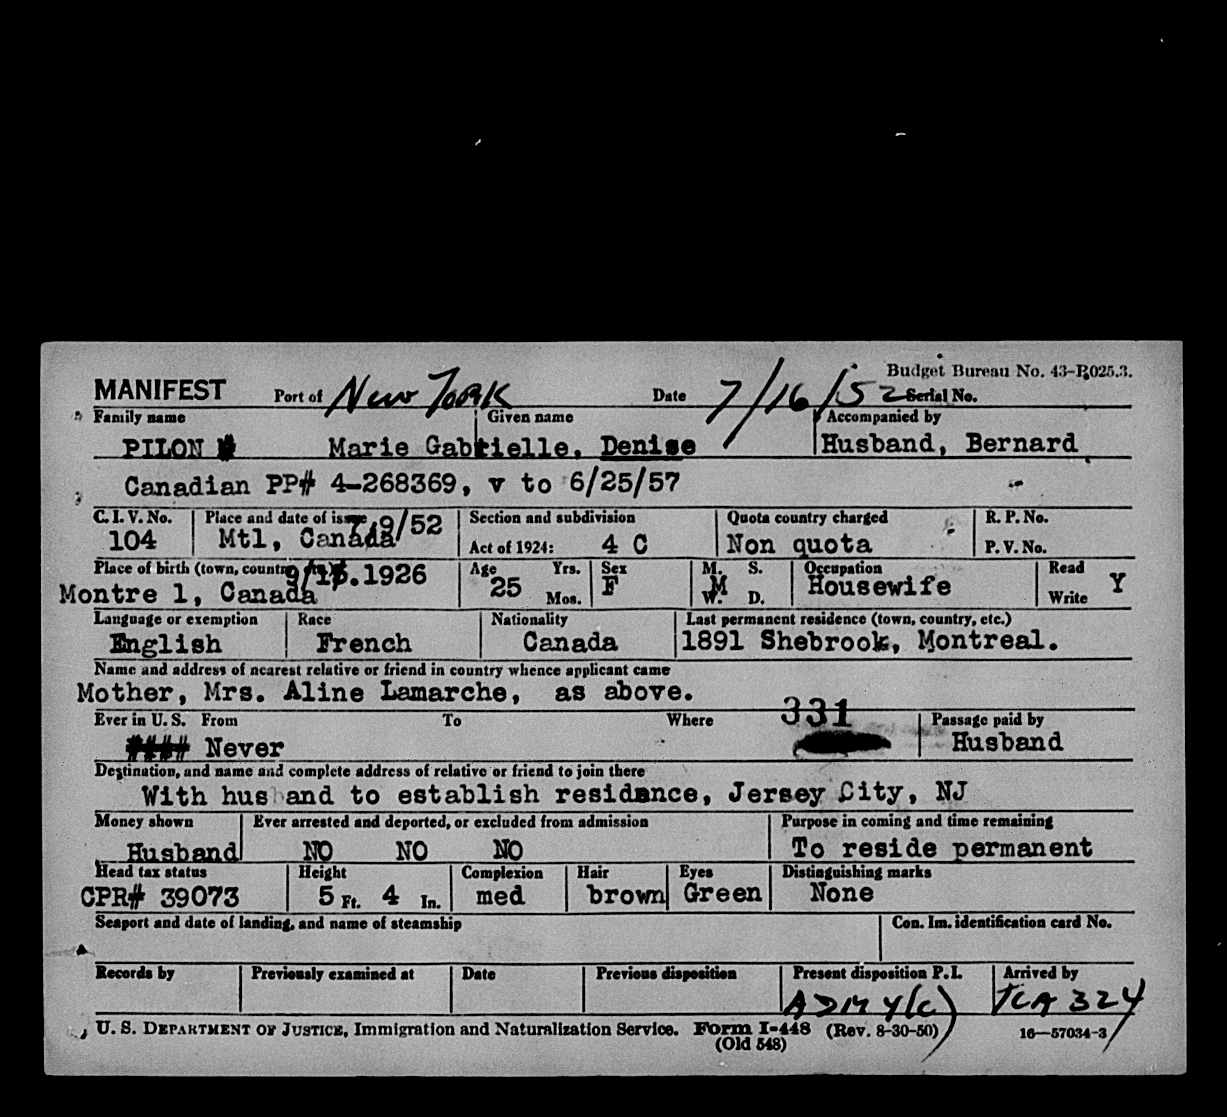 Budget Bureau No. 43-R025.3.
MANIFEST Port of New York Date 7/16/52 Serial No.
Family name Given name Accompanied by
PILON Marie Gabrielle, Denise Husband, Bernard
Canadian PP# 4-268369, v to 6/25/57
C. I. V. No. Place and date of issue 7/9/52 Section and subdivision Quota country charged R. P. No.
104 Mtl, Canada Act of 1924: 4 C Non quota P. V. No.
Place of birth (town, country, Age Yrs. Sex M. S. Occupation Read
Montre l, Canada 25 Mos. F M W. D. Housewife Write Y
Language or exemption Race Nationality Last permanent residence (town, country, etc.)
English French Canada 1891 Shebrook, Montreal.
Name and address of nearest relative or friend in country whence applicant came
Mother, Mrs. Aline Lamarche, as above.
Ever in U. S. From To Where 331 Passage paid by
Never Husband
Destination, and name and complete address of relative or friend to join there
With hus and to establish residence, Jersey City, NJ
Money shown Ever arrested and deported, or excluded from admission Purpose in coming and time remaining
Husband NO NO NO To reside permanent
Head tax status Height Complexion Hair Eyes Distinguishing marks
CPR# 39073 5 Ft. 4 In. med brown Green None
Seaport and date of landing, and name of steamship Con. Im. identification card No.
Records by Previously examined at Date Previous disposition Present disposition P. I. Arrived by
ADM 4(c) TCA 324
U. S. DEPARTMENT OF JUSTICE, Immigration and Naturalization Service. Form I-448 (Rev. 8-30-50) 16—57034-3
(Old 548)